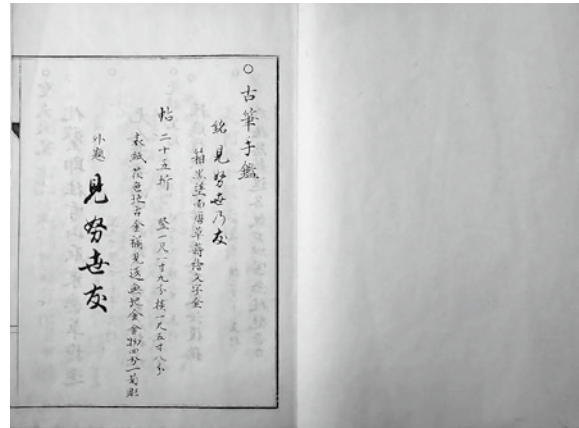 ○古筆手鑑
銘 見努世乃友
箱黒塗南唐草蒔絵文字金
帖 二十五折 竪一尺一寸九分横一尺五寸八分
表紙花色地古金襴見返無地金金物四分一菊彫
外題 見努世友